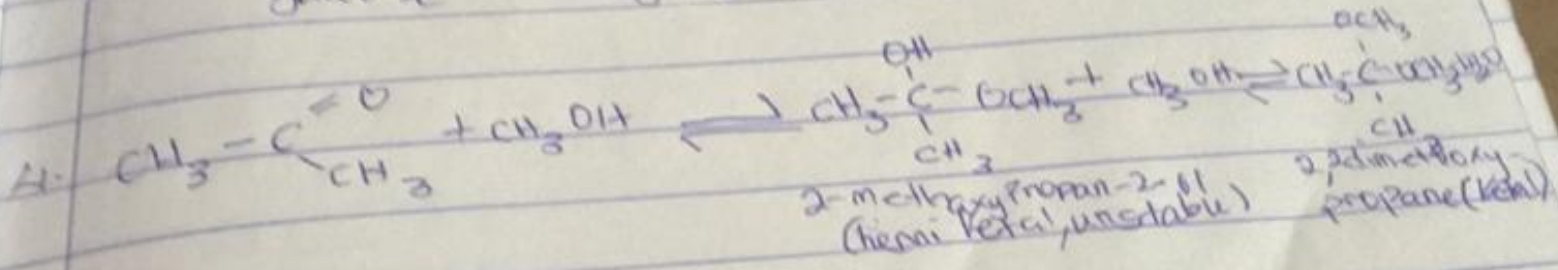 OH
OCH₃
4. CH₃ - C = O + CH₃OH ⇌ CH₃ - C - OCH₃ + CH₃OH ⇌ CH₃ - C - OCH₃ H₂O
CH₃
CH₃
CH
2-methoxypropan-2-ol
(hemi ketal, unstable)
2,2dimethoxy-
propane (ketal)